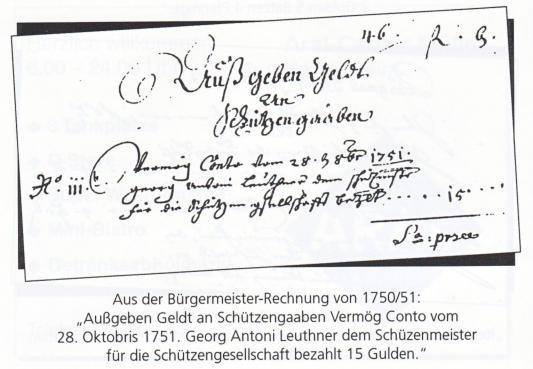 46. f. b.
Außgeben Geldt
an
Schützengaaben
No. iii. Vermög Conto vom 28. 8br 1751.
georg antoni Leuthner dem
für die Schützengsellschafft bezalt ..... 15 ....
Aus der Bürgermeister-Rechnung von 1750/51:
„Außgeben Geldt an Schützengaaben Vermög Conto vom
28. Oktobris 1751. Georg Antoni Leuthner dem Schüzenmeister
für die Schützengesellschaft bezahlt 15 Gulden.“